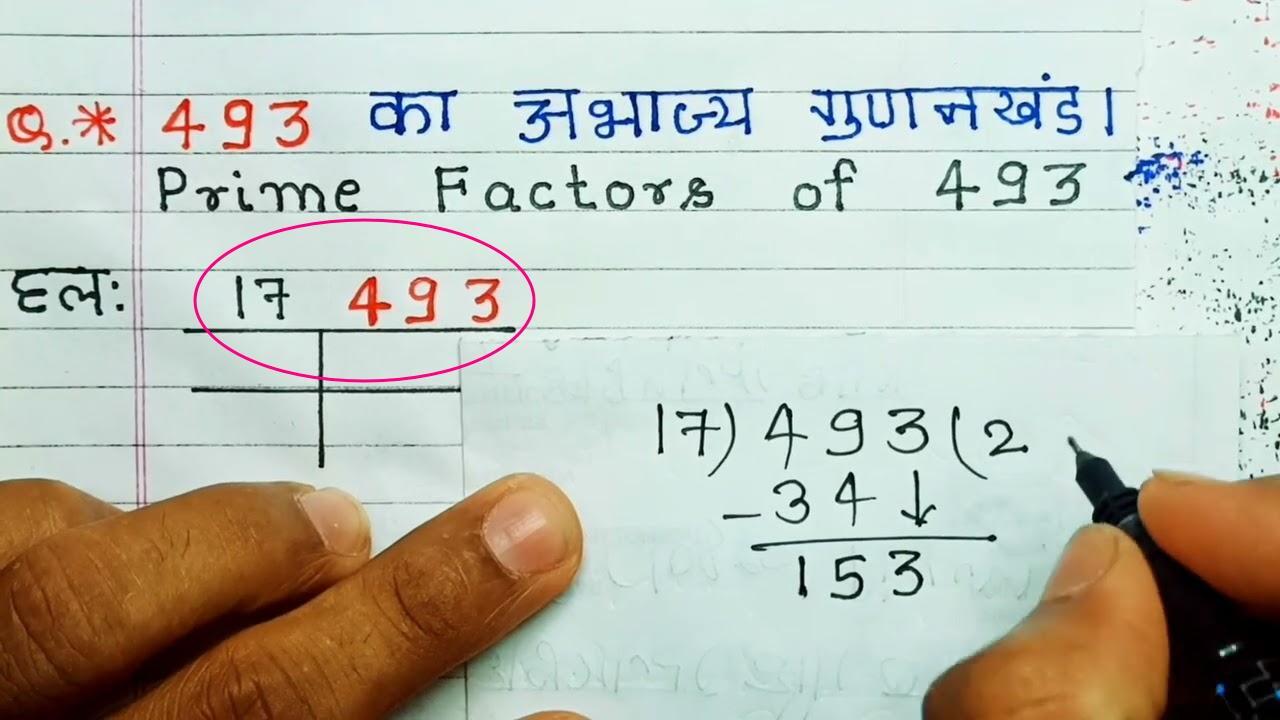 Q.* 493 का अभाज्य गुणनखंड।
Prime Factors of 493
हलः 17 493
17) 493 (2
-34↓
153